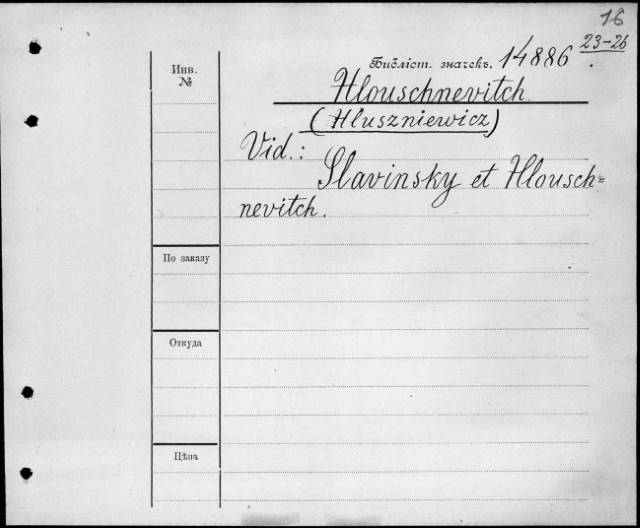 16
23-26
Инв.
№
Библіот. значекъ. 14886.
Hlouschnevitch
(Hluszniewicz)
Vid.:
Slavinsky et Hlousch=
nevitch.
По заказу
Откуда
Цѣна